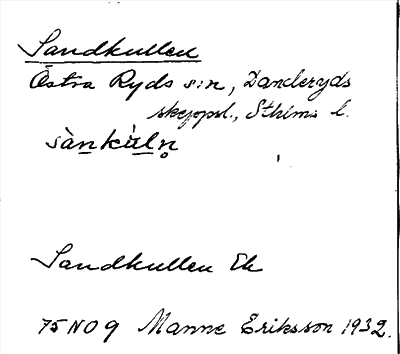 Sandkullen
Östra Ryds s:n, Danderyds
skeppsl., Sthlms l.
sànkùln̥
Sandkullen Ek
75 NO 9 Manne Eriksson 1932.